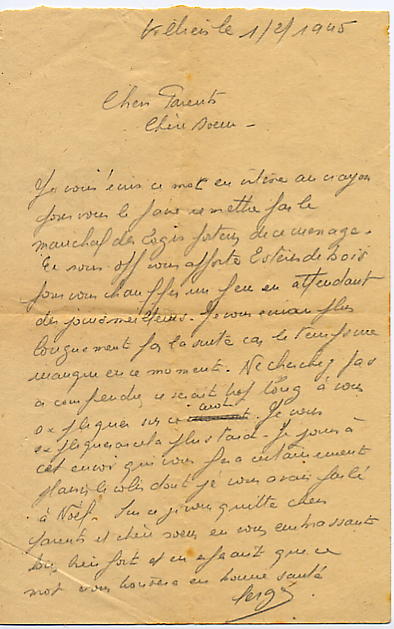 le 1/2/1945
Chers Parents
Chère Soeur -
Je vous écris ce mot en vitesse au crayon
pour vous le faire remettre par le
maréchal des logis porteur de ce message.
Ce sous off vous apporte 2 stères de bois
pour vous chauffer un peu en attendant
des jours meilleurs. Je vous écrirai plus
longuement par la suite car le temps me
manque en ce moment. Ne cherchez pas
à comprendre ce serait trop long à vous
expliquer sur ce mot. Je vous
expliquerai cela plus tard. Je joins à
cet envoi qui vous fera certainement
plaisir le colis dont je vous avais parlé
à Noël. Sur ce je vous quitte chers
parents et chère soeur en vous embrassant
tous bien fort et en espérant que ce
mot vous trouvera en bonne santé
Serge